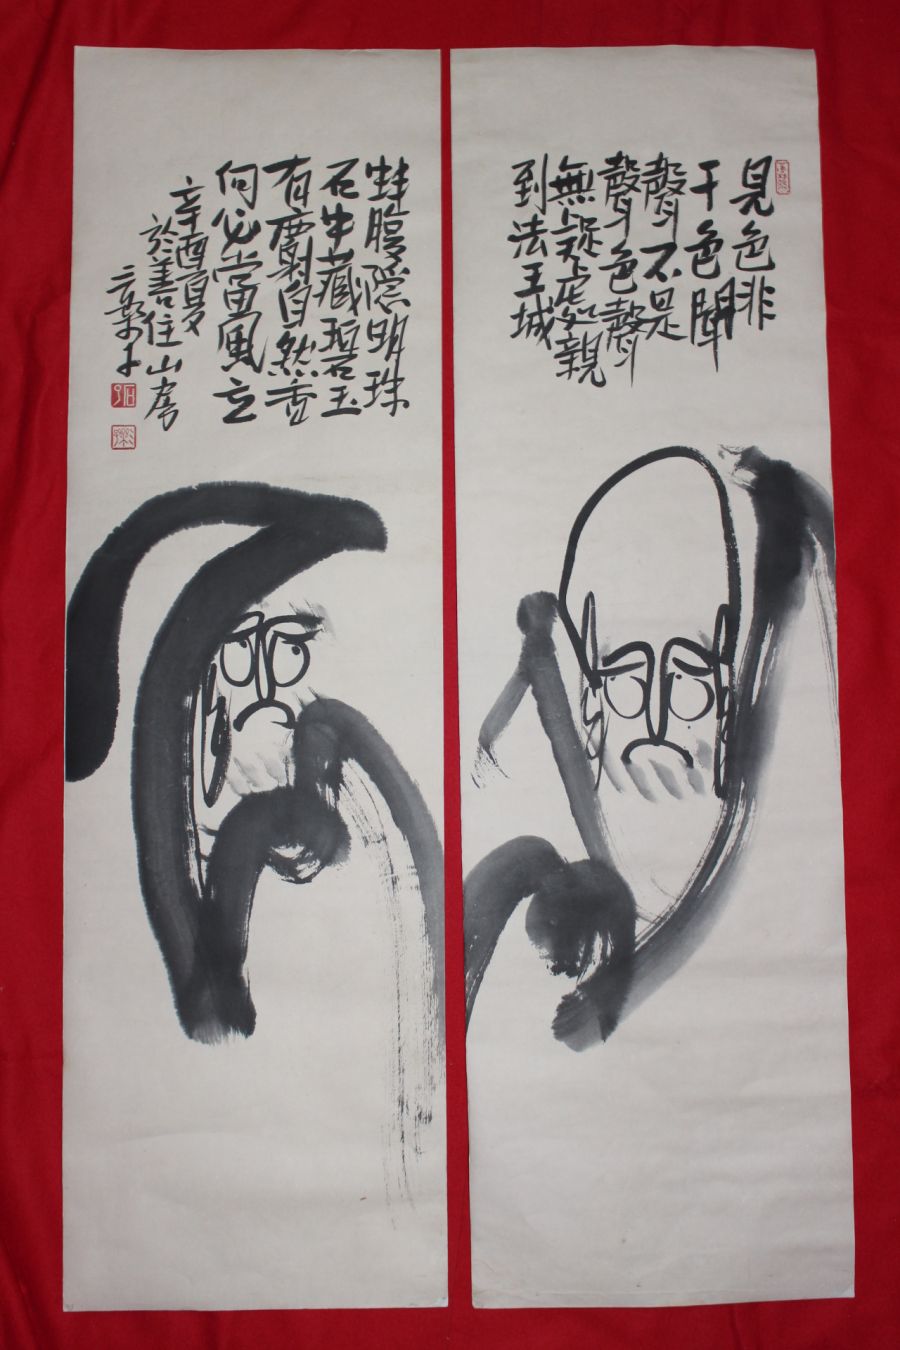 見色非
干色聞
聲不是
聲色聲
無礙處親
到法王城
蚌腹隱明珠
石中藏碧玉
有麝自然香
何必當風立
辛酉夏
於善住山房